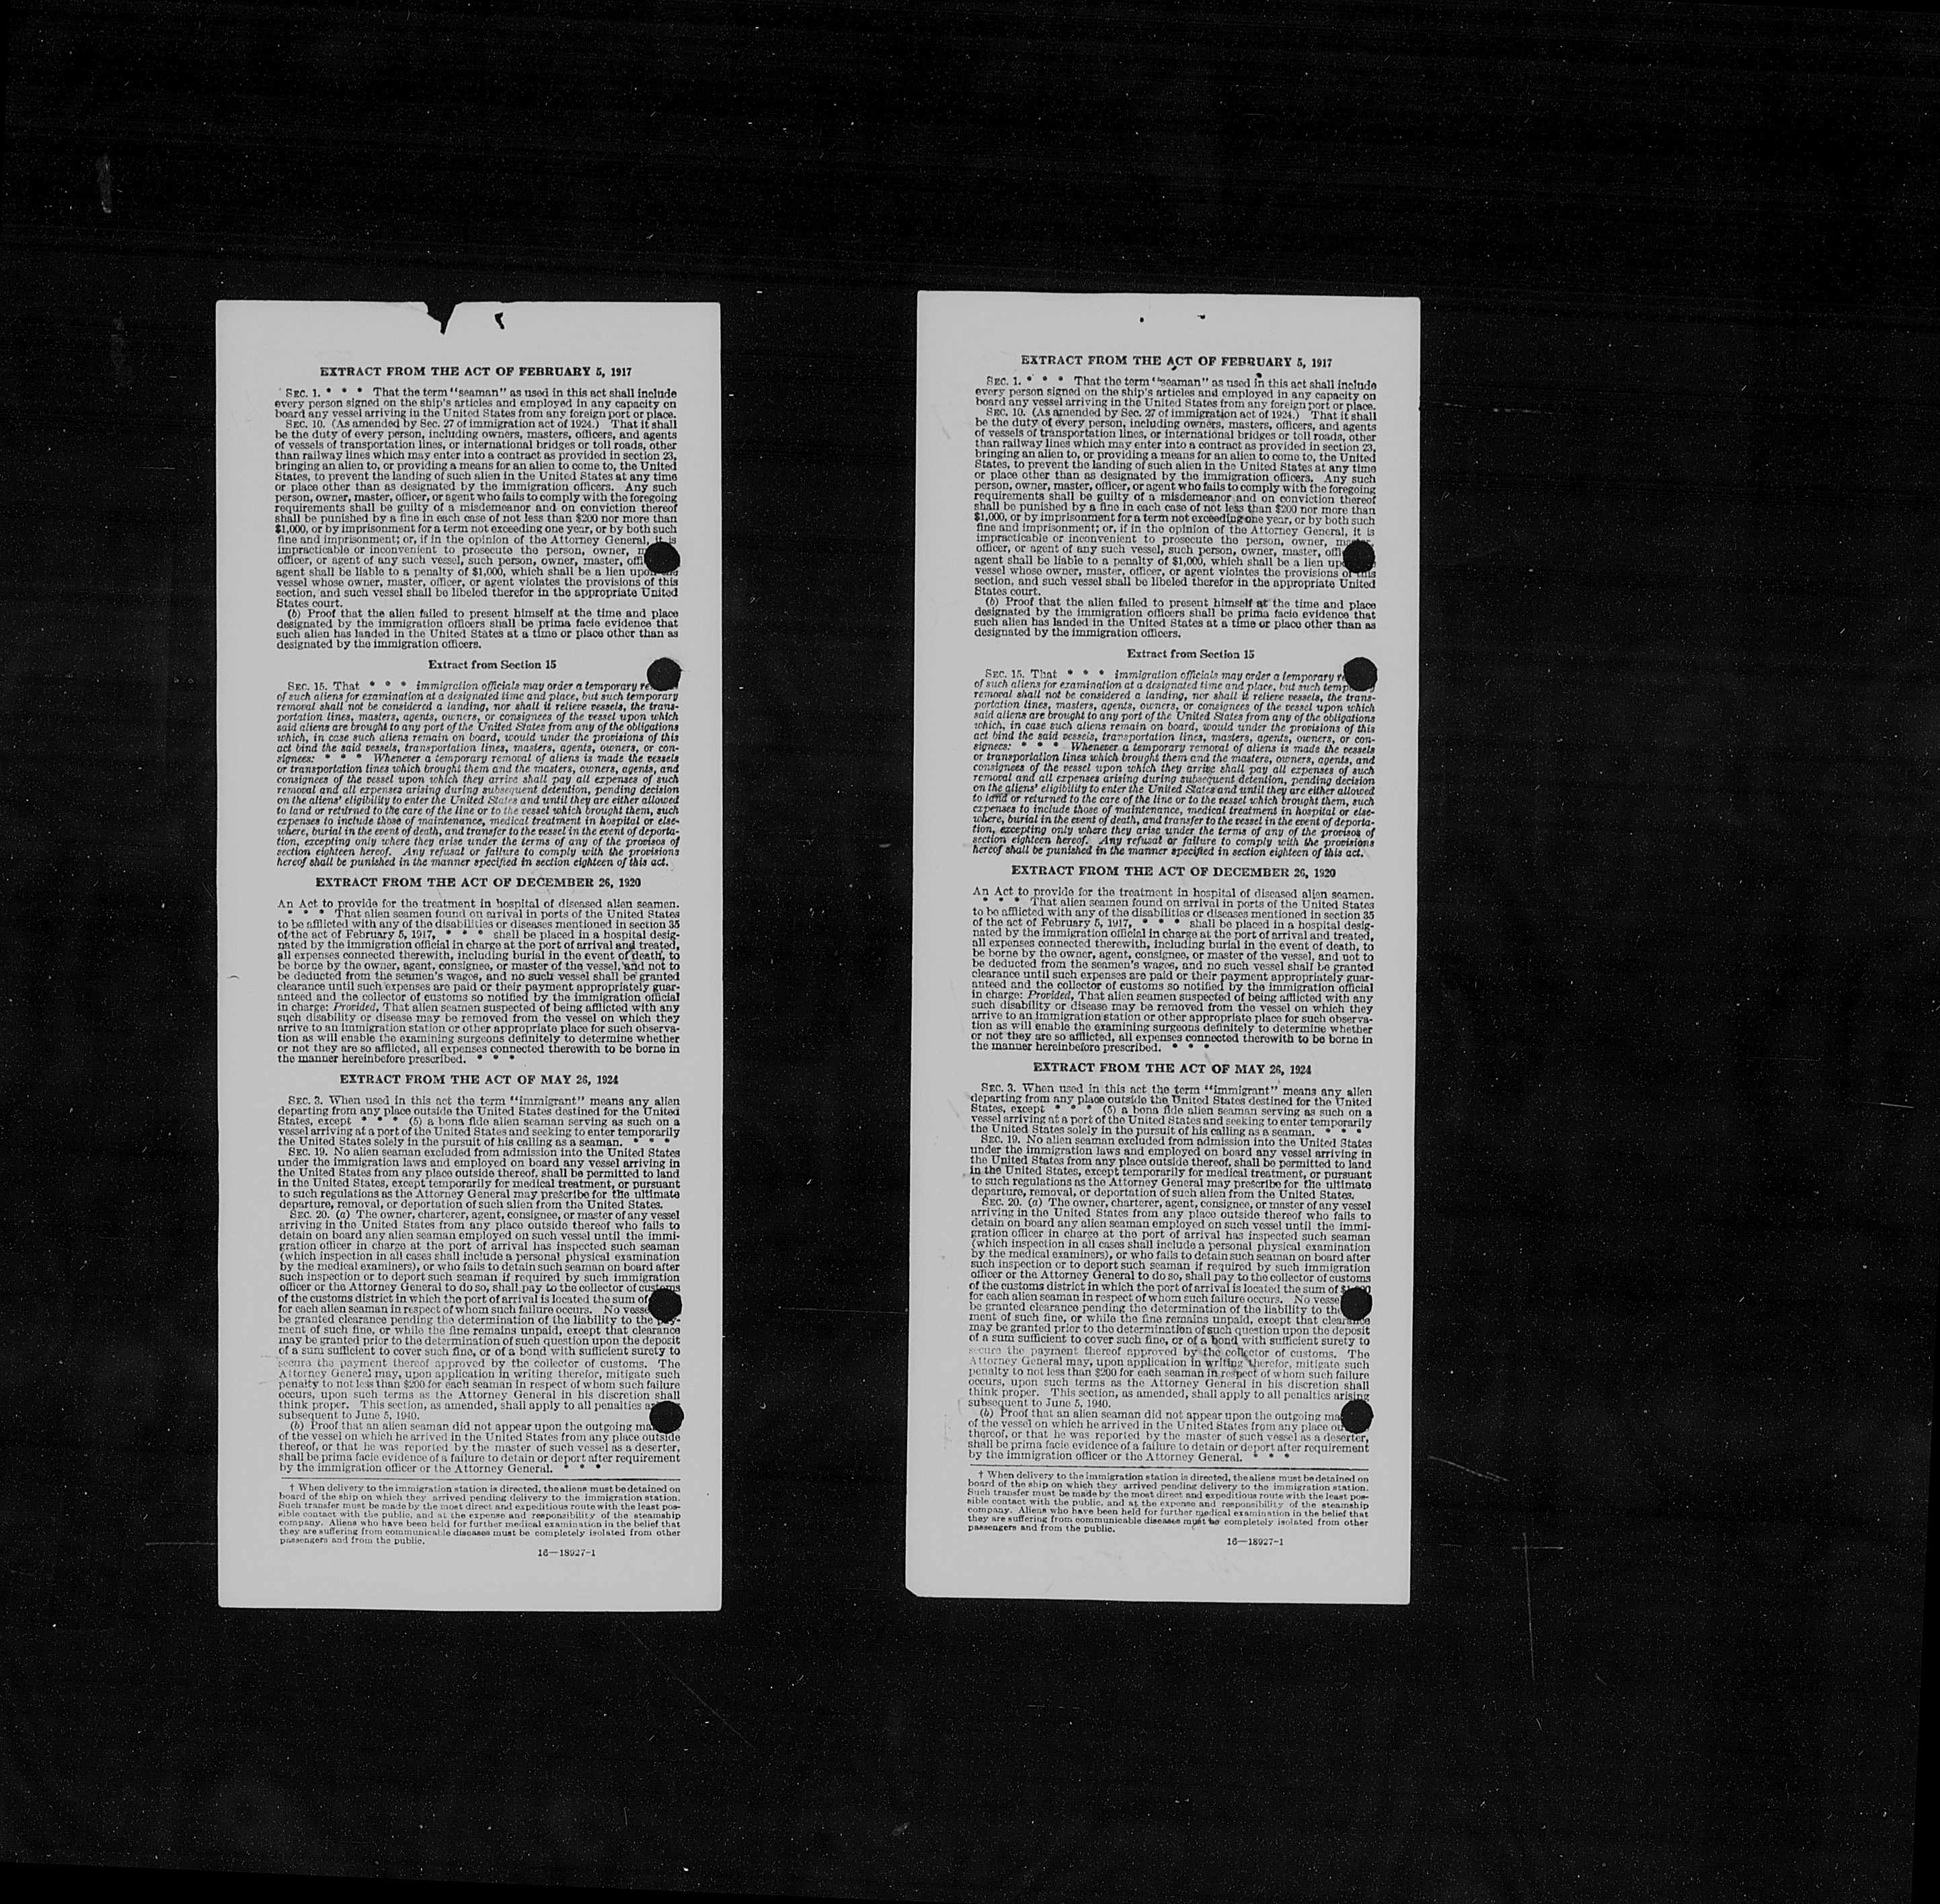 EXTRACT FROM THE ACT OF FEBRUARY 5, 1917
SEC. 1. * * * That the term "seaman" as used in this act shall include
every person signed on the ship's articles and employed in any capacity on
board any vessel arriving in the United States from any foreign port or place.
SEC. 10. (As amended by Sec. 27 of immigration act of 1924.) That it shall
be the duty of every person, including owners, masters, officers, and agents
of vessels of transportation lines, or international bridges or toll roads, other
than railway lines which may enter into a contract as provided in section 23,
bringing an alien to, or providing a means for an alien to come to, the United
States, to prevent the landing of such alien in the United States at any time
or place other than as designated by the immigration officers. Any such
person, owner, master, officer, or agent who fails to comply with the foregoing
requirements shall be guilty of a misdemeanor and on conviction thereof
shall be punished by a fine in each case of not less than $200 nor more than
$1,000, or by imprisonment for a term not exceeding one year, or by both such
fine and imprisonment; or, if in the opinion of the Attorney General, it is
impracticable or inconvenient to prosecute the person, owner,
officer, or agent of any such vessel, such person, owner, master,
agent shall be liable to a penalty of $1,000, which shall be a lien upon the
vessel whose owner, master, officer, or agent violates the provisions of this
section, and such vessel shall be libeled therefor in the appropriate United
States court.
(b) Proof that the alien failed to present himself at the time and place
designated by the immigration officers shall be prima facie evidence that
such alien has landed in the United States at a time or place other than as
designated by the immigration officers.
Extract from Section 15
SEC. 15. That * * * immigration officials may order a temporary
of such aliens for examination at a designated time and place, but such temporary
removal shall not be considered a landing, nor shall it relieve vessels, the trans-
portation lines, masters, agents, owners, or consignees of the vessel upon which
said aliens are brought to any port of the United States from any of the obligations
which, in case such aliens remain on board, would under the provisions of this
act bind the said vessels, transportation lines, masters, agents, owners, or con-
signees: * * * Whenever a temporary removal of aliens is made the vessels
or transportation lines which brought them and the masters, owners, agents, and
consignees of the vessel upon which they arrive shall pay all expenses of such
removal and all expenses arising during subsequent detention, pending decision
on the aliens' eligibility to enter the United States and until they are either allowed
to land or returned to the care of the line or to the vessel which brought them, such
expenses to include those of maintenance, medical treatment in hospital or else-
where, burial in the event of death, and transfer to the vessel in the event of deporta-
tion, excepting only where they arise under the terms of any of the provisos of
section eighteen hereof. Any refusal or failure to comply with the provisions
hereof shall be punished in the manner specified in section eighteen of this act.
EXTRACT FROM THE ACT OF DECEMBER 26, 1920
An Act to provide for the treatment in hospital of diseased alien seamen.
* * * That alien seamen found on arrival in ports of the United States
to be afflicted with any of the disabilities or diseases mentioned in section 35
of the act of February 5, 1917, * * * shall be placed in a hospital desig-
nated by the immigration official in charge at the port of arrival and treated,
all expenses connected therewith, including burial in the event of death, to
be borne by the owner, agent, consignee, or master of the vessel, and not to
be deducted from the seamen's wages, and no such vessel shall be granted
clearance until such expenses are paid or their payment appropriately guar-
anteed and the collector of customs so notified by the immigration official
in charge: Provided, That alien seamen suspected of being afflicted with any
such disability or disease may be removed from the vessel on which they
arrive to an immigration station or other appropriate place for such observa-
tion as will enable the examining surgeons definitely to determine whether
or not they are so afflicted, all expenses connected therewith to be borne in
the manner hereinbefore prescribed. * * *
EXTRACT FROM THE ACT OF MAY 26, 1924
SEC. 3. When used in this act the term "immigrant" means any alien
departing from any place outside the United States destined for the United
States, except * * * (5) a bona fide alien seaman serving as such on a
vessel arriving at a port of the United States and seeking to enter temporarily
the United States solely in the pursuit of his calling as a seaman. * * *
SEC. 19. No alien seaman excluded from admission into the United States
under the immigration laws and employed on board any vessel arriving in
the United States from any place outside thereof, shall be permitted to land
in the United States, except temporarily for medical treatment, or pursuant
to such regulations as the Attorney General may prescribe for the ultimate
departure, removal, or deportation of such alien from the United States.
SEC. 20. (a) The owner, charterer, agent, consignee, or master of any vessel
arriving in the United States from any place outside thereof who fails to
detain on board any alien seaman employed on such vessel until the immi-
gration officer in charge at the port of arrival has inspected such seaman
(which inspection in all cases shall include a personal physical examination
by the medical examiners), or who fails to detain such seaman on board after
such inspection or to deport such seaman if required by such immigration
officer or the Attorney General to do so, shall pay to the collector of customs
of the customs district in which the port of arrival is located the sum of
for each alien seaman in respect of whom such failure occurs. No
be granted clearance pending the determination of the liability to the pay-
ment of such fine, or while the fine remains unpaid, except that clearance
may be granted prior to the determination of such question upon the deposit
of a sum sufficient to cover such fine, or of a bond with sufficient surety to
secure the payment thereof approved by the collector of customs. The
Attorney General may, upon application in writing therefor, mitigate such
penalty to not less than $200 for each seaman in respect of whom such failure
occurs, upon such terms as the Attorney General in his discretion shall
think proper. This section, as amended, shall apply to all penalties
subsequent to June 5, 1940.
(b) Proof that an alien seaman did not appear upon the outgoing
of the vessel on which he arrived in the United States from any place outside
thereof, or that he was reported by the master of such vessel as a deserter,
shall be prima facie evidence of a failure to detain or deport after requirement
by the immigration officer or the Attorney General. * * *
† When delivery to the immigration station is directed, the aliens must be detained on
board of the ship on which they arrived pending delivery to the immigration station.
Such transfer must be made by the most direct and expeditious route with the least pos-
sible contact with the public, and at the expense and responsibility of the steamship
company. Aliens who have been held for further medical examination in the belief that
they are suffering from communicable diseases must be completely isolated from other
passengers and from the public.
16—18927-1
EXTRACT FROM THE ACT OF FEBRUARY 5, 1917
SEC. 1. * * * That the term "seaman" as used in this act shall include
every person signed on the ship's articles and employed in any capacity on
board any vessel arriving in the United States from any foreign port or place.
SEC. 10. (As amended by Sec. 27 of immigration act of 1924.) That it shall
be the duty of every person, including owners, masters, officers, and agents
of vessels of transportation lines, or international bridges or toll roads, other
than railway lines which may enter into a contract as provided in section 23,
bringing an alien to, or providing a means for an alien to come to, the United
States, to prevent the landing of such alien in the United States at any time
or place other than as designated by the immigration officers. Any such
person, owner, master, officer, or agent who fails to comply with the foregoing
requirements shall be guilty of a misdemeanor and on conviction thereof
shall be punished by a fine in each case of not less than $200 nor more than
$1,000, or by imprisonment for a term not exceeding one year, or by both such
fine and imprisonment; or, if in the opinion of the Attorney General, it is
impracticable or inconvenient to prosecute the person, owner, master,
officer, or agent of any such vessel, such person, owner, master,
agent shall be liable to a penalty of $1,000, which shall be a lien
vessel whose owner, master, officer, or agent violates the provisions of this
section, and such vessel shall be libeled therefor in the appropriate United
States court.
(b) Proof that the alien failed to present himself at the time and place
designated by the immigration officers shall be prima facie evidence that
such alien has landed in the United States at a time or place other than as
designated by the immigration officers.
Extract from Section 15
SEC. 15. That * * * immigration officials may order a temporary
of such aliens for examination at a designated time and place, but such
removal shall not be considered a landing, nor shall it relieve vessels, the trans-
portation lines, masters, agents, owners, or consignees of the vessel upon which
said aliens are brought to any port of the United States from any of the obligations
which, in case such aliens remain on board, would under the provisions of this
act bind the said vessels, transportation lines, masters, agents, owners, or con-
signees: * * * Whenever a temporary removal of aliens is made the vessels
or transportation lines which brought them and the masters, owners, agents, and
consignees of the vessel upon which they arrive shall pay all expenses of such
removal and all expenses arising during subsequent detention, pending decision
on the aliens' eligibility to enter the United States and until they are either allowed
to land or returned to the care of the line or to the vessel which brought them, such
expenses to include those of maintenance, medical treatment in hospital or else-
where, burial in the event of death, and transfer to the vessel in the event of deporta-
tion, excepting only where they arise under the terms of any of the provisos of
section eighteen hereof. Any refusal or failure to comply with the provisions
hereof shall be punished in the manner specified in section eighteen of this act.
EXTRACT FROM THE ACT OF DECEMBER 26, 1920
An Act to provide for the treatment in hospital of diseased alien seamen.
* * * That alien seamen found on arrival in ports of the United States
to be afflicted with any of the disabilities or diseases mentioned in section 35
of the act of February 5, 1917, * * * shall be placed in a hospital desig-
nated by the immigration official in charge at the port of arrival and treated,
all expenses connected therewith, including burial in the event of death, to
be borne by the owner, agent, consignee, or master of the vessel, and not to
be deducted from the seamen's wages, and no such vessel shall be granted
clearance until such expenses are paid or their payment appropriately guar-
anteed and the collector of customs so notified by the immigration official
in charge: Provided, That alien seamen suspected of being afflicted with any
such disability or disease may be removed from the vessel on which they
arrive to an immigration station or other appropriate place for such observa-
tion as will enable the examining surgeons definitely to determine whether
or not they are so afflicted, all expenses connected therewith to be borne in
the manner hereinbefore prescribed. * * *
EXTRACT FROM THE ACT OF MAY 26, 1924
SEC. 3. When used in this act the term "immigrant" means any alien
departing from any place outside the United States destined for the United
States, except * * * (5) a bona fide alien seaman serving as such on a
vessel arriving at a port of the United States and seeking to enter temporarily
the United States solely in the pursuit of his calling as a seaman. * * *
SEC. 19. No alien seaman excluded from admission into the United States
under the immigration laws and employed on board any vessel arriving in
the United States from any place outside thereof, shall be permitted to land
in the United States, except temporarily for medical treatment, or pursuant
to such regulations as the Attorney General may prescribe for the ultimate
departure, removal, or deportation of such alien from the United States.
SEC. 20. (a) The owner, charterer, agent, consignee, or master of any vessel
arriving in the United States from any place outside thereof who fails to
detain on board any alien seaman employed on such vessel until the immi-
gration officer in charge at the port of arrival has inspected such seaman
(which inspection in all cases shall include a personal physical examination
by the medical examiners), or who fails to detain such seaman on board after
such inspection or to deport such seaman if required by such immigration
officer or the Attorney General to do so, shall pay to the collector of customs
of the customs district in which the port of arrival is located the sum of
for each alien seaman in respect of whom such failure occurs. No
be granted clearance pending the determination of the liability to the
ment of such fine, or while the fine remains unpaid, except that clearance
may be granted prior to the determination of such question upon the deposit
of a sum sufficient to cover such fine, or of a bond with sufficient surety to
secure the payment thereof approved by the collector of customs. The
Attorney General may, upon application in writing therefor, mitigate such
penalty to not less than $200 for each seaman in respect of whom such failure
occurs, upon such terms as the Attorney General in his discretion shall
think proper. This section, as amended, shall apply to all penalties arising
subsequent to June 5, 1940.
(b) Proof that an alien seaman did not appear upon the outgoing
of the vessel on which he arrived in the United States from any place
thereof, or that he was reported by the master of such vessel as a deserter,
shall be prima facie evidence of a failure to detain or deport after requirement
by the immigration officer or the Attorney General. * * *
† When delivery to the immigration station is directed, the aliens must be detained on
board of the ship on which they arrived pending delivery to the immigration station.
Such transfer must be made by the most direct and expeditious route with the least pos-
sible contact with the public, and at the expense and responsibility of the steamship
company. Aliens who have been held for further medical examination in the belief that
they are suffering from communicable diseases must be completely isolated from other
passengers and from the public.
16—18927-1